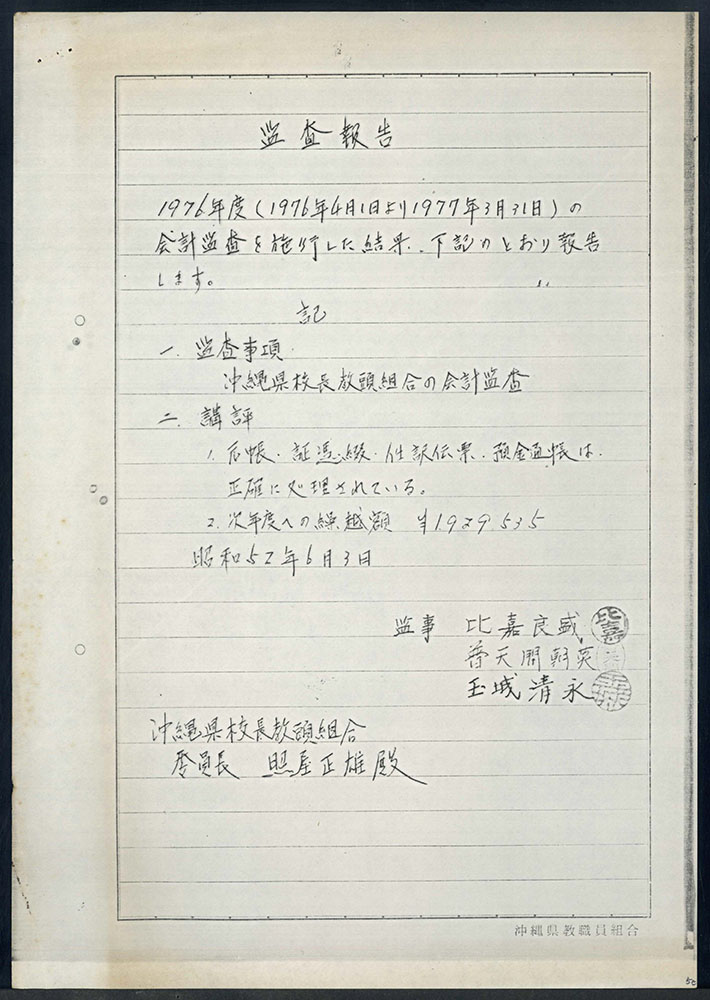 監査報告
1976年度(1976年4月1日より1977年3月31日)の
会計監査を施行した結果、下記のとおり報告
します。
記
一. 監査事項
沖縄県校長教頭組合の会計監査
二. 講評
1. 元帳・証憑綴・仕訳伝票・預金通帳は
正確に処理されている。
2. 次年度への繰越額 ¥1929,535
昭和52年6月3日
監事 比嘉良盛
普天間朝英
玉城清永
沖縄県校長教頭組合
委員長 照屋正雄殿
沖縄県教職員組合
52